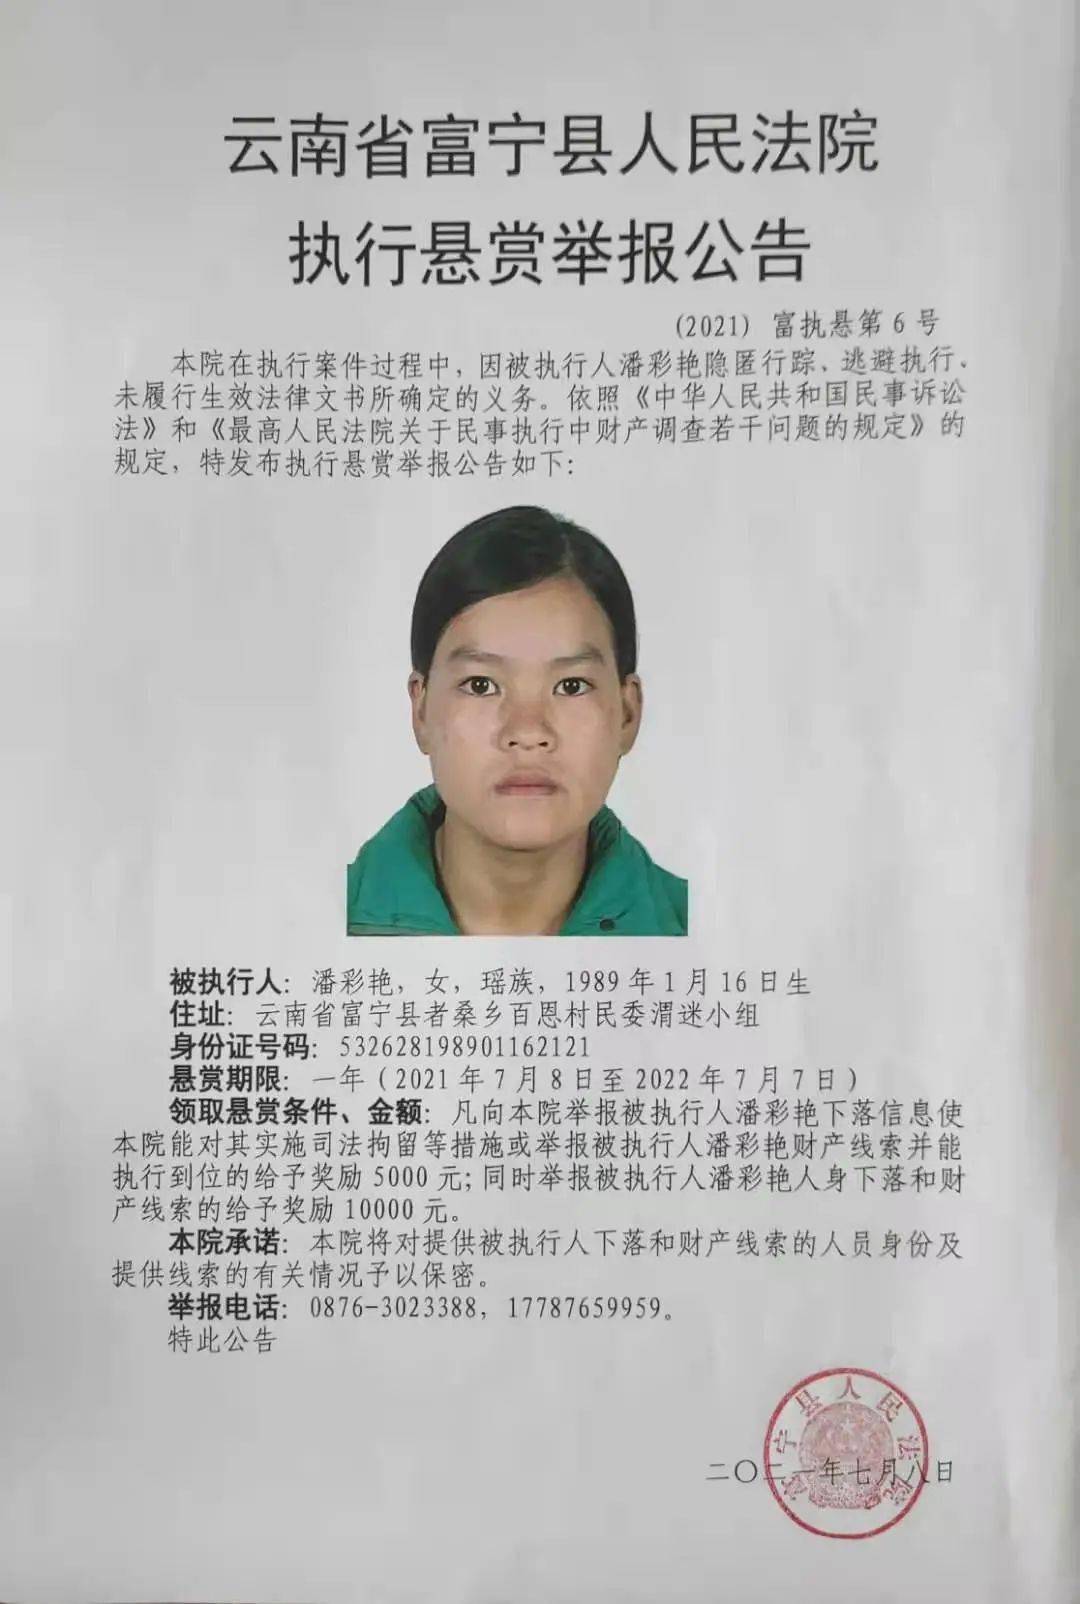 云南省富宁县人民法院
执行悬赏举报公告
(2021) 富执悬第 6 号
本院在执行案件过程中，因被执行人潘彩艳隐匿行踪、逃避执行、
未履行生效法律文书所确定的义务。依照《中华人民共和国民事诉讼
法》和《最高人民法院关于民事执行中财产调查若干问题的规定》的
规定，特发布执行悬赏举报公告如下：
被执行人：潘彩艳，女，瑶族，1989 年 1 月 16 日生
住址：云南省富宁县者桑乡百恩村民委渭迷小组
身份证号码：532628198901162121
悬赏期限：一年（2021 年 7 月 8 日至 2022 年 7 月 7 日）
领取悬赏条件、金额：凡向本院举报被执行人潘彩艳下落信息使
本院能对其实施司法拘留等措施或举报被执行人潘彩艳财产线索并能
执行到位的给予奖励 5000 元；同时举报被执行人潘彩艳人身下落和财
产线索的给予奖励 10000 元。
本院承诺：本院将对提供被执行人下落和财产线索的人员身份及
提供线索的有关情况予以保密。
举报电话：0876-3023388，17787659959。
特此公告
富宁县人民法院
二〇二一年七月八日